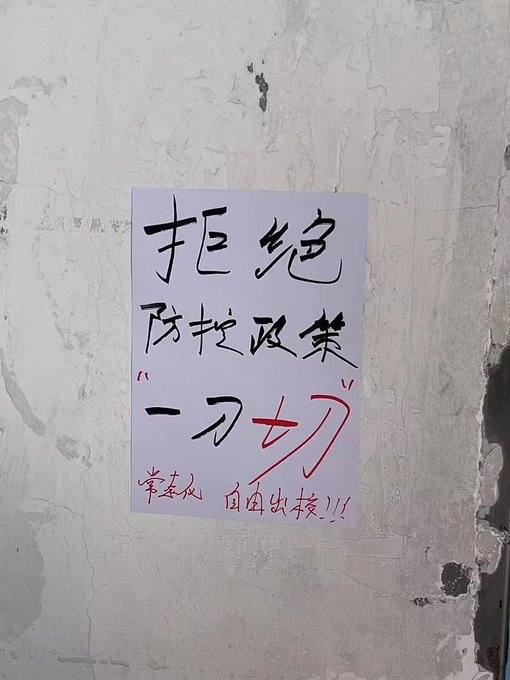 拒绝
防控政策
"一刀切"
常态化 自由出校!!!